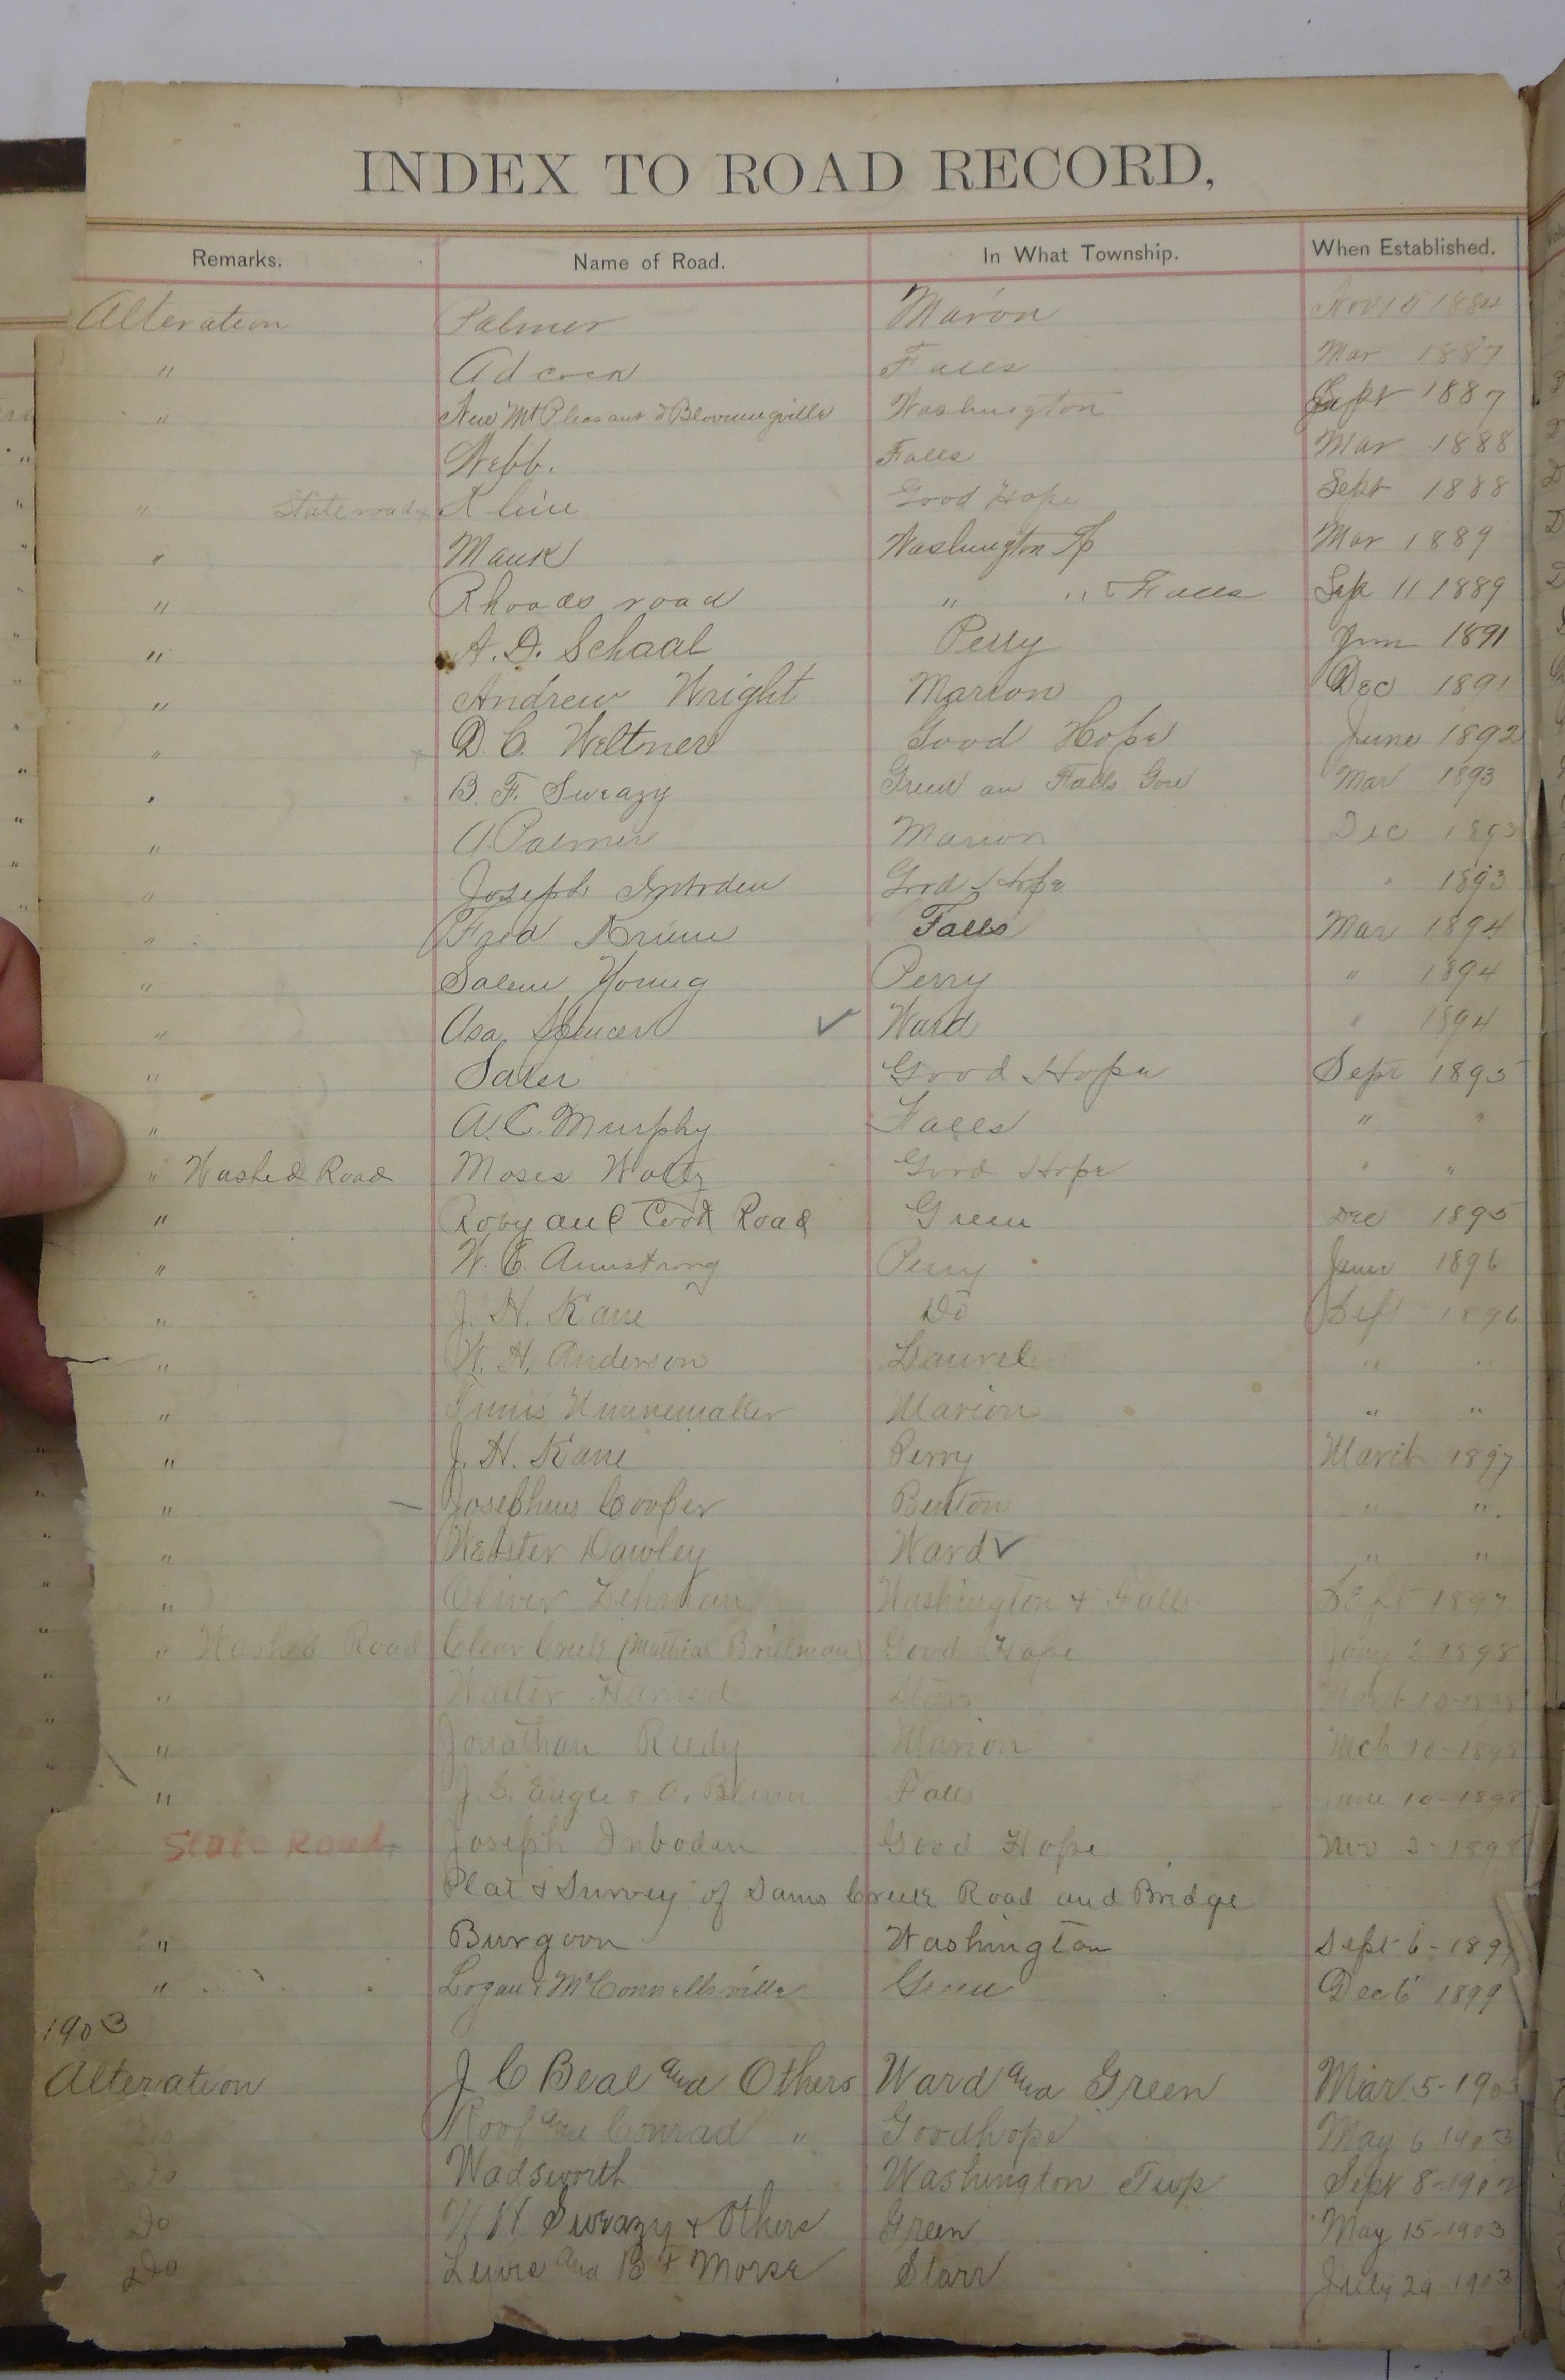 INDEX TO ROAD RECORD,
Remarks. Name of Road. In What Township. When Established.
Alteration Palmer Marion Nov 15 1884
" Adcock Falls Mar 1887
" New Mt Pleasant & Bloomingville Washington Sept 1887
Webb. Falls Mar 1888
" State road Kline Good Hope Sept 1888
" Mauk Washington Tp Mar 1889
" Rhoads road " " & Falls Sep 11 1889
" A. D. Schaal Perry Jun 1891
" Andrew Wright Marion Dec 1891
" D. C. Weltner Good Hope June 1892
" B. F. Sweazy Green an Falls Gore Mar 1893
" A Palmer Marion Dec 1893
" Joseph Good Hope " 1893
" Fred Falls Mar 1894
" Salem Young Perry " 1894
" Asa Spencer ✓ Ward " 1894
" Good Hope Sept 1895
" A. C. Murphy Falls " "
" Washed Road Moses Woltz Good Hope " "
" Roby and Cook Road Green Dec 1895
" W. E. Armstrong Perry June 1896
" J. H. Kane Do Sept 1896
" W. H. Anderson Laurel " "
" Nunnemaker Marion " "
" J. H. Kane Perry March 1897
" Josephus Cooper Benton " ".
" Webster Dawley Ward ✓ " "
" Oliver Lehman Washington & Falls Sept 1897
" Washed Road Clear Creek (Mathias Good Hope Jany 3 1898
" Walter Harsed Starr March 10-1898
" Jonathan Reedy Marion Mch 10-1898
" J. S. Engle & A. Blum Falls June 10-1898
State Road Joseph Inboden Good Hope Nov 3-1898
Plat & Survey of Sams Creek Road and Bridge
" Burgoon Washington Sept 6-1899
" Logan & McConnellsville Green Dec 6 1899
1903
Alteration J C Beal and Others Ward and Green Mar. 5-1903
Do Roof and Conrad " Goodhope May 6 1903
Do Wadsworth Washington Twp Sept 8-1902
Do W H Sweazy & Others Green May 15-1903
Do Lewis and B F Morse Starr July 29 1903